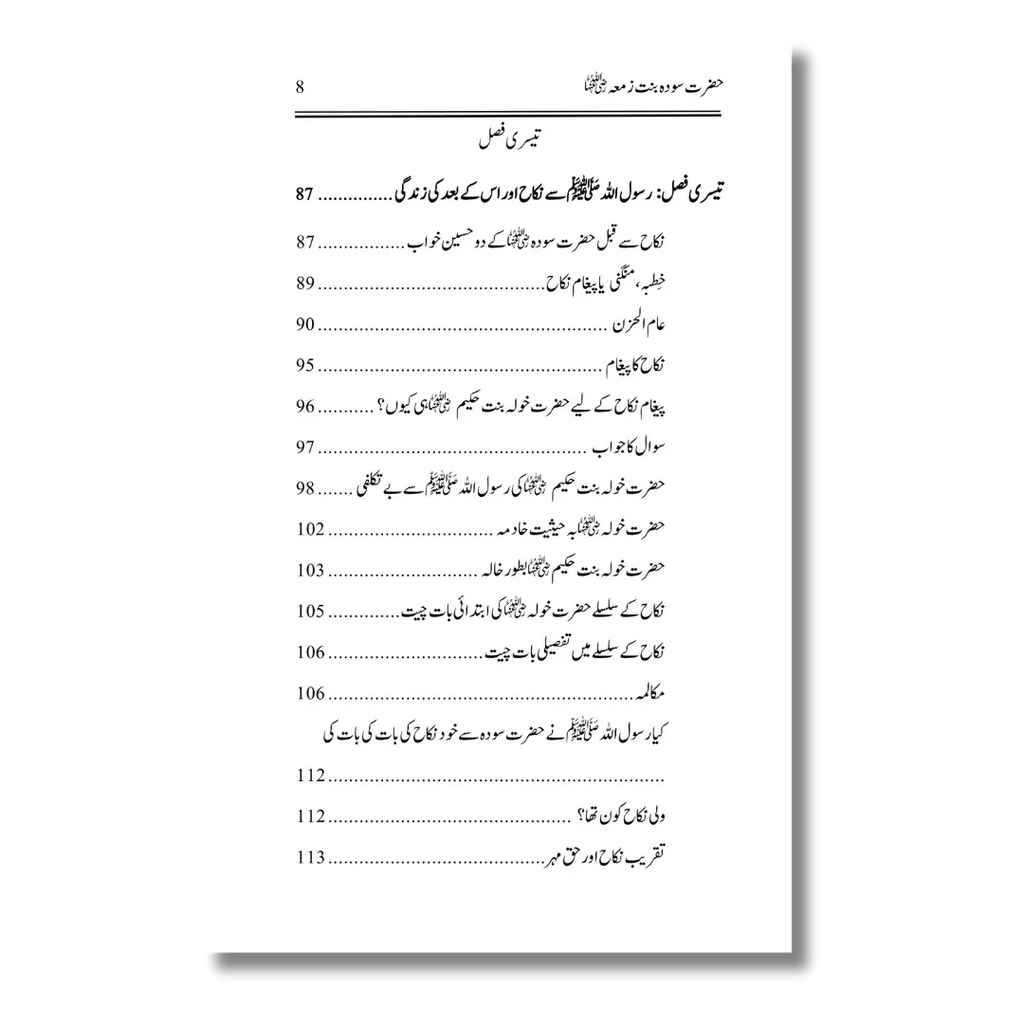 حضرت سودہ بنت زمعہ رضی اللہ عنہا 8
تیسری فصل
تیسری فصل: رسول اللہ ﷺ سے نکاح اور اس کے بعد کی زندگی ............... 87
نکاح سے قبل حضرت سودہ رضی اللہ عنہا کے دو حسین خواب .................. 87
خِطبہ، منگنی یا پیغام نکاح ............................................ 89
عام الحزن ........................................................ 90
نکاح کا پیغام ....................................................... 95
پیغام نکاح کے لیے حضرت خولہ بنت حکیم رضی اللہ عنہا ہی کیوں؟ ........... 96
سوال کا جواب .................................................... 97
حضرت خولہ بنت حکیم رضی اللہ عنہا کی رسول اللہ ﷺ سے بے تکلفی ....... 98
حضرت خولہ رضی اللہ عنہا بہ حیثیت خادمہ ................................ 102
حضرت خولہ بنت حکیم رضی اللہ عنہا بطور خالہ ............................. 103
نکاح کے سلسلے حضرت خولہ رضی اللہ عنہا کی ابتدائی بات چیت .............. 105
نکاح کے سلسلے میں تفصیلی بات چیت .............................. 106
مکالمہ ........................................................... 106
کیا رسول اللہ ﷺ نے حضرت سودہ سے خود نکاح کی بات کی بات کی
................................................................. 112
ولی نکاح کون تھا؟ ............................................... 112
تقریب نکاح اور حق مہر .......................................... 113